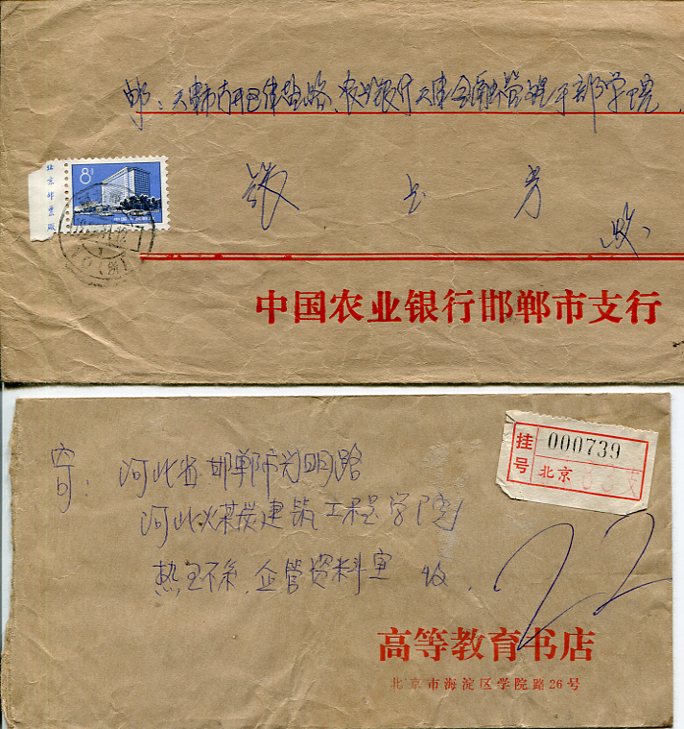 邮：天津市
农业银行天津金融管理干部学院
北京邮票厂
8分
中国人民邮政
张 玉 芳
收
中国农业银行邯郸市支行
挂号
000739
北京
寄：河北省邯郸市光明路
河北煤炭建筑工程学院
企管资料室 收
22
高等教育书店
北京市海淀区学院路26号